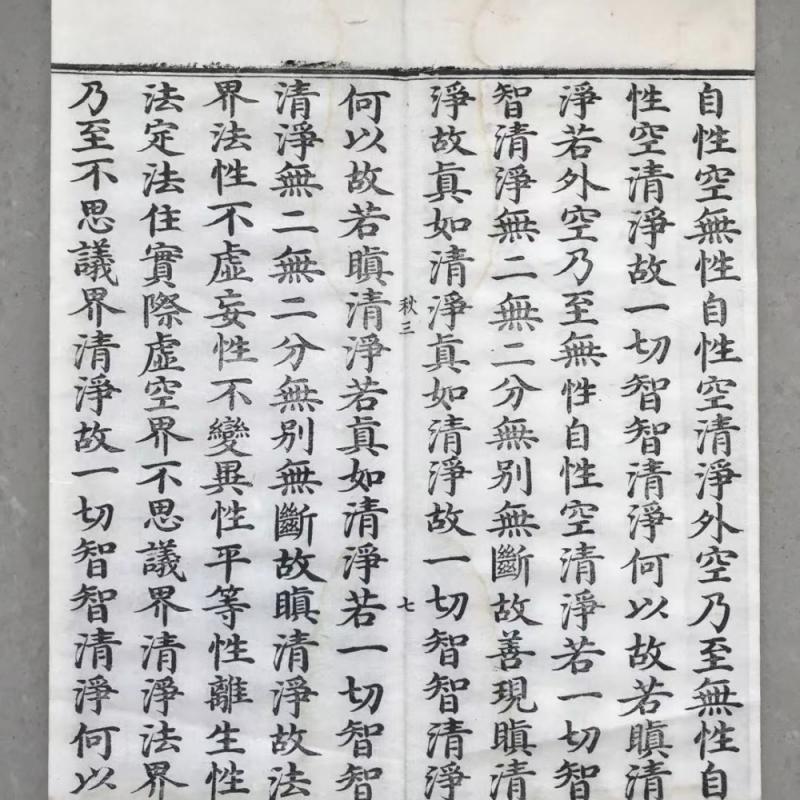 自性空無性自性空清淨外空乃至無性自
性空清淨故一切智智清淨何以故若瞋清
淨若外空乃至無性自性空清淨若一切智
智清淨無二無二分無別無斷故善現瞋清
淨故眞如清淨眞如清淨故一切智智清淨
秋三 七
何以故若瞋清淨若眞如清淨若一切智智
清淨無二無二分無別無斷故瞋清淨故法
界法性不虛妄性不變異性平等性離生性
法定法住實際虛空界不思議界清淨法界
乃至不思議界清淨故一切智智清淨何以